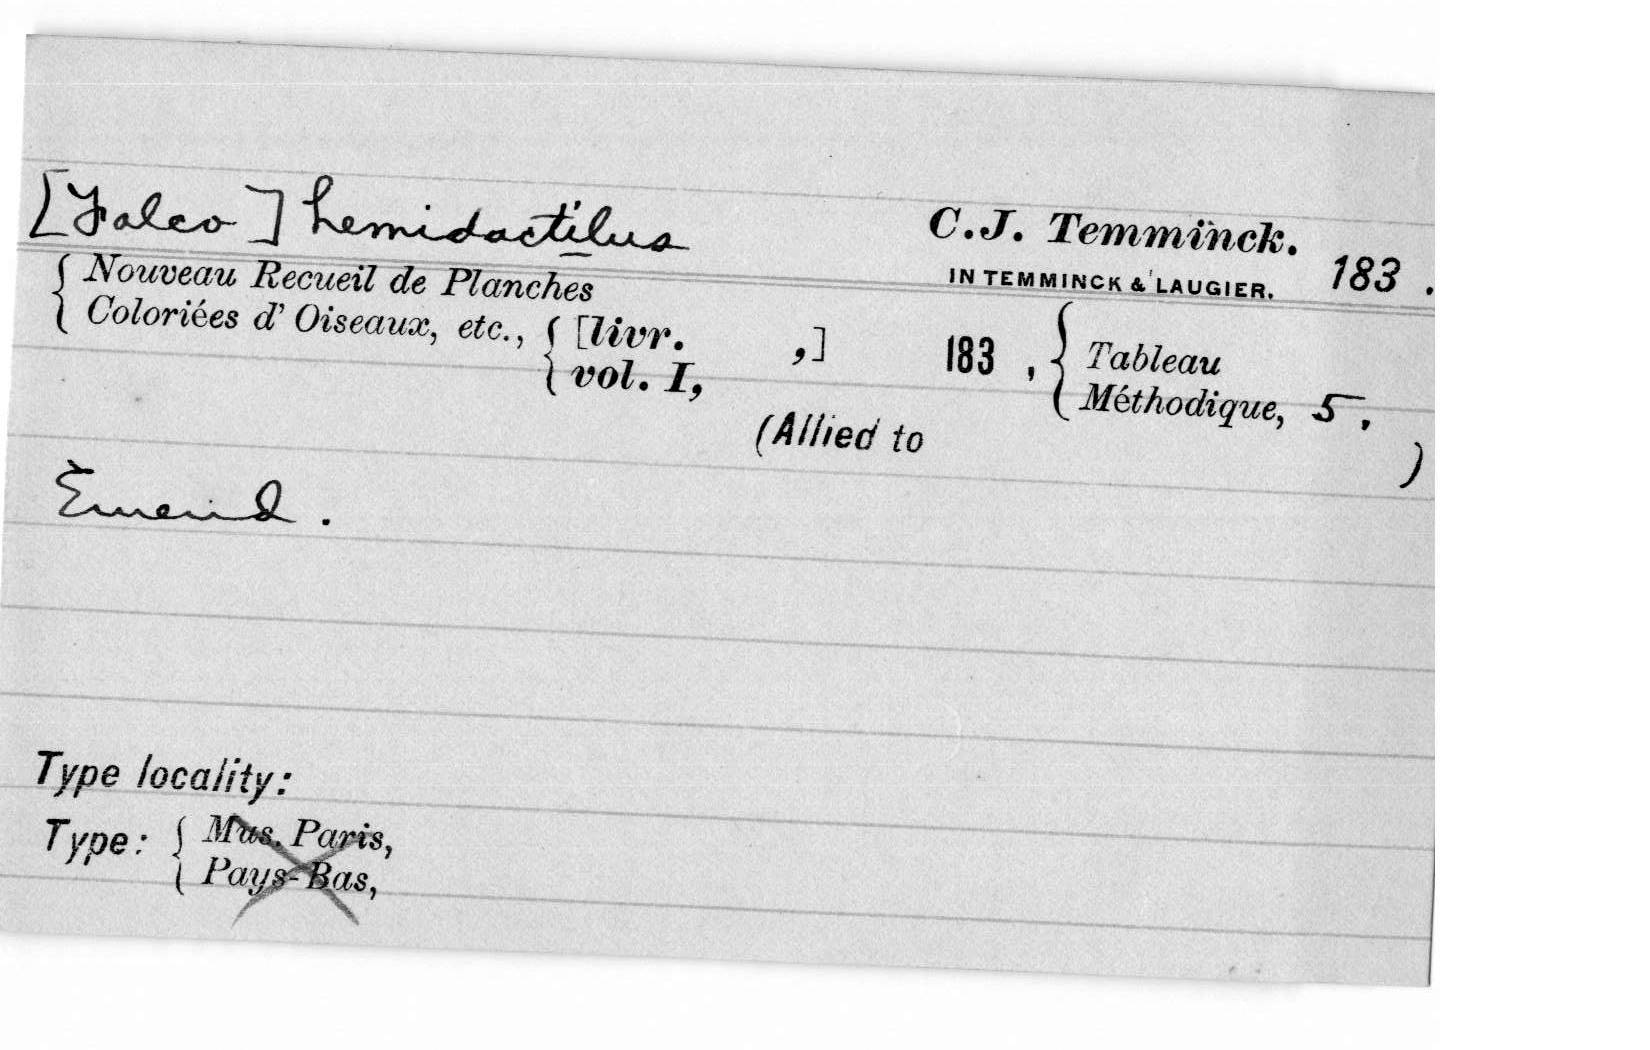 [Falco] hemidactilus C.J. Temminck.
IN TEMMINCK & LAUGIER. 183 .
Nouveau Recueil de Planches
Coloriées d' Oiseaux, etc., [livr. ,] 183 , Tableau
vol. I, Méthodique, 5.
(Allied to )
Emend.
Type locality:
Type: Mus. Paris,
Pays-Bas,